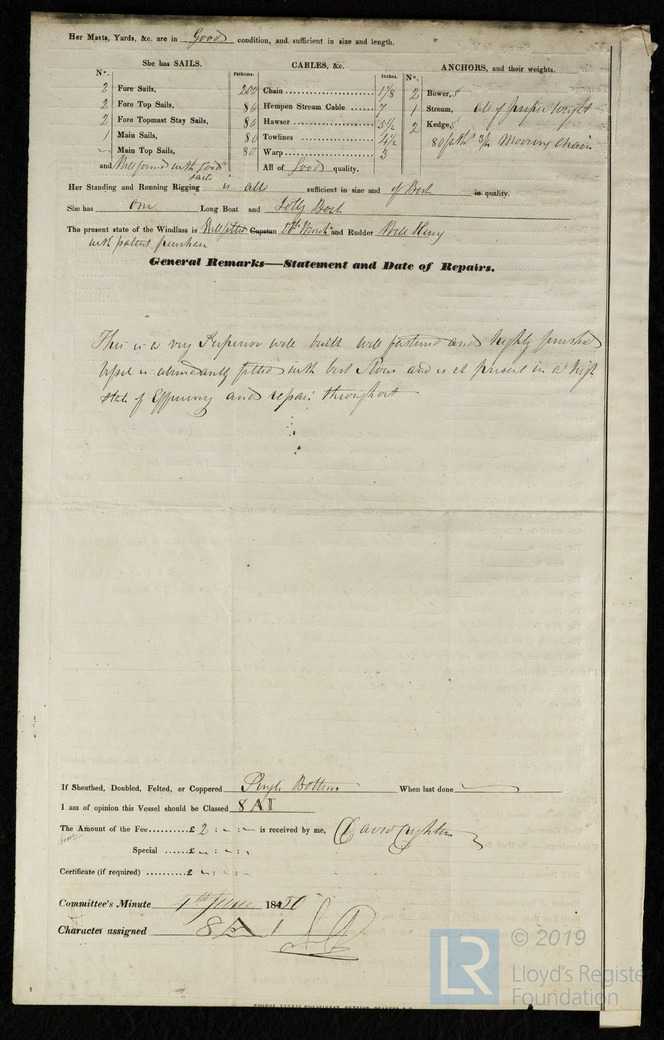 Her Masts, Yards, &c. are in Good condition, and sufficient in size and length.
She has SAILS. CABLES, &c. ANCHORS, and their weights.
N°. Fathoms. Inches. N°.
2 Fore Sails, 200 Chain 1 1/8 2 Bower,
2 Fore Top Sails, 80 Hempen Stream Cable 7 1 Stream, all of proper weight
2 Fore Topmast Stay Sails, 80 Hawser 5 1/2 2 Kedge,
1 Main Sails, 80 Towlines 4 1/2 80 Mooring Chain
Main Top Sails, 80 Warp 3
and Well found with good All of Good quality.
Her Standing and Running Rigging is all sufficient in size and of Best in quality.
She has One Long Boat and Jolly Boat
The present state of the Windlass is Well fitted Capstan and Rudder Well Hung
with patent
General Remarks—Statement and Date of Repairs.
This is a very Superior well built well fastened and highly finished
Vessel is abundantly fitted with best Stores and is at present in a high
state of Efficiency and repair throughout
If Sheathed, Doubled, Felted, or Coppered Single Bottom When last done
I am of opinion this Vessel should be Classed 8 A 1
The Amount of the Fee..........£ 2 : - : - is received by me, David
Special ......£ - : - : -
Certificate (if required) ..........£ - : - : -
Committee's Minute 1850
Character assigned 8 A 1
LR © 2019
Lloyd's Register
Foundation